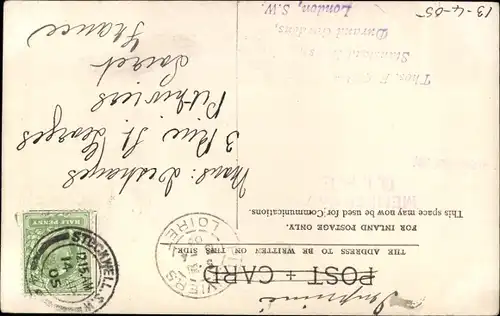 Imprimé
POST + CARD
THE ADDRESS TO BE WRITTEN ON THIS SIDE.
FOR INLAND POSTAGE ONLY.
This space may now be used for Communications.
Deshayes
3 Rue St. Georges
Pithiviers
Loiret
France
HALF PENNY
STOCKWELL. S.W.
12.15AM
14
05
VIERS
LOIRET
Thos. F.
Durand Gardens,
London, S.W.
13-4-05